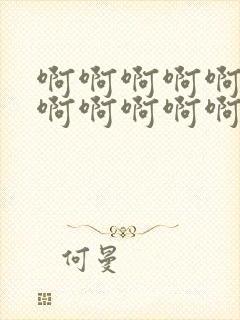 啊啊啊啊啊
啊啊啊啊啊
何曼